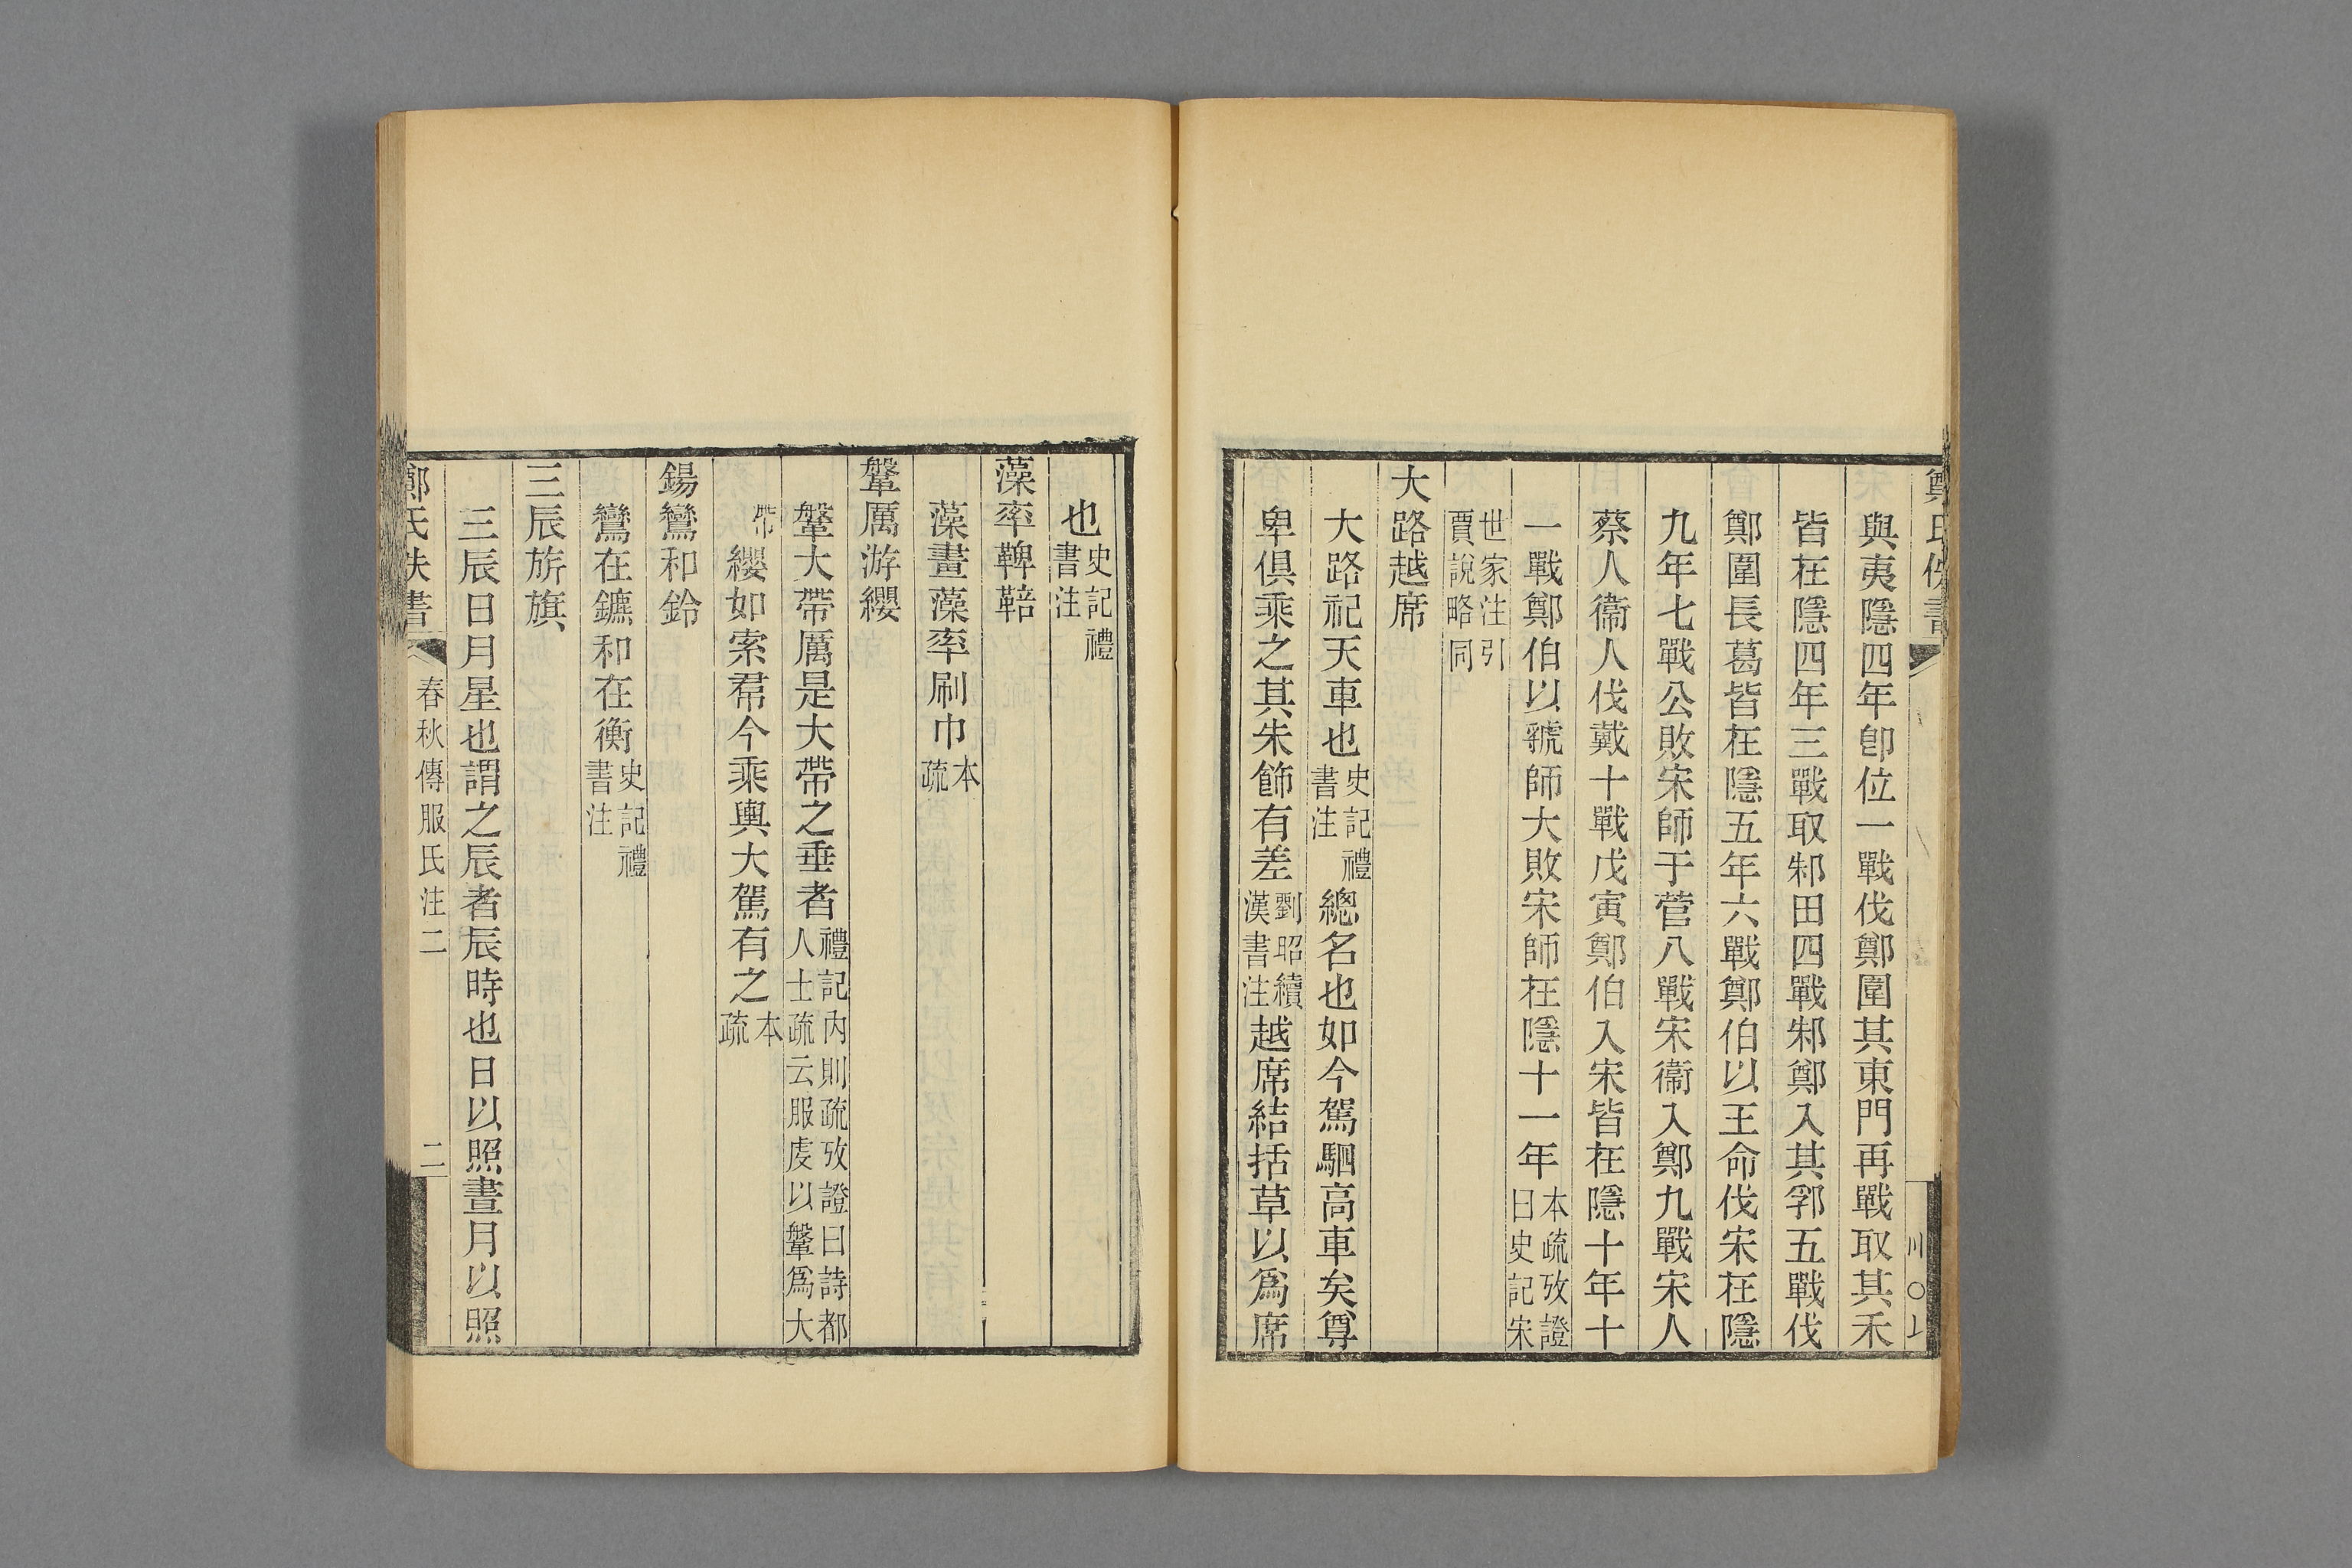 鄭氏佚書
與夷隱四年卽位一戰伐鄭圍其東門再戰取其禾
皆在隱四年三戰取邾田四戰邾鄭入其郛五戰伐
鄭圍長葛皆在隱五年六戰鄭伯以王命伐宋在隱
九年七戰公敗宋師于菅八戰宋衞入鄭九戰宋人
蔡人衞人伐戴十戰戊寅鄭伯入宋皆在隱十年十
一戰鄭伯以虢師大敗宋師在隱十一年本疏攷證曰史記宋
世家注引賈說略同
大路越席
大路祀天車也史記禮書注總名也如今駕駟高車矣尊
卑俱乘之其朱飾有差劉昭續漢書注越席結括草以爲席
也史記禮書注
藻率鞞鞛
藻畫藻率刷巾本疏
鞶厲游纓
鞶大帶厲是大帶之垂者禮記內則疏攷證曰詩都人士疏云服虔以鞶爲大
帶纓如索帬今乘輿大駕有之本疏
鍚鸞和鈴
鸞在鑣和在衡史記禮書注
三辰旂旗
三辰日月星也謂之辰者辰時也日以照晝月以照
鄭氏佚書 春秋傳服氏注二 二